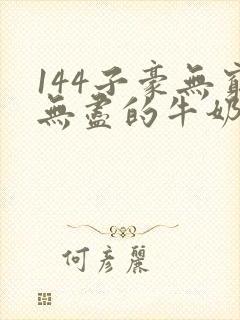 144子豪無窮
無盡的牛奶
何彥麗